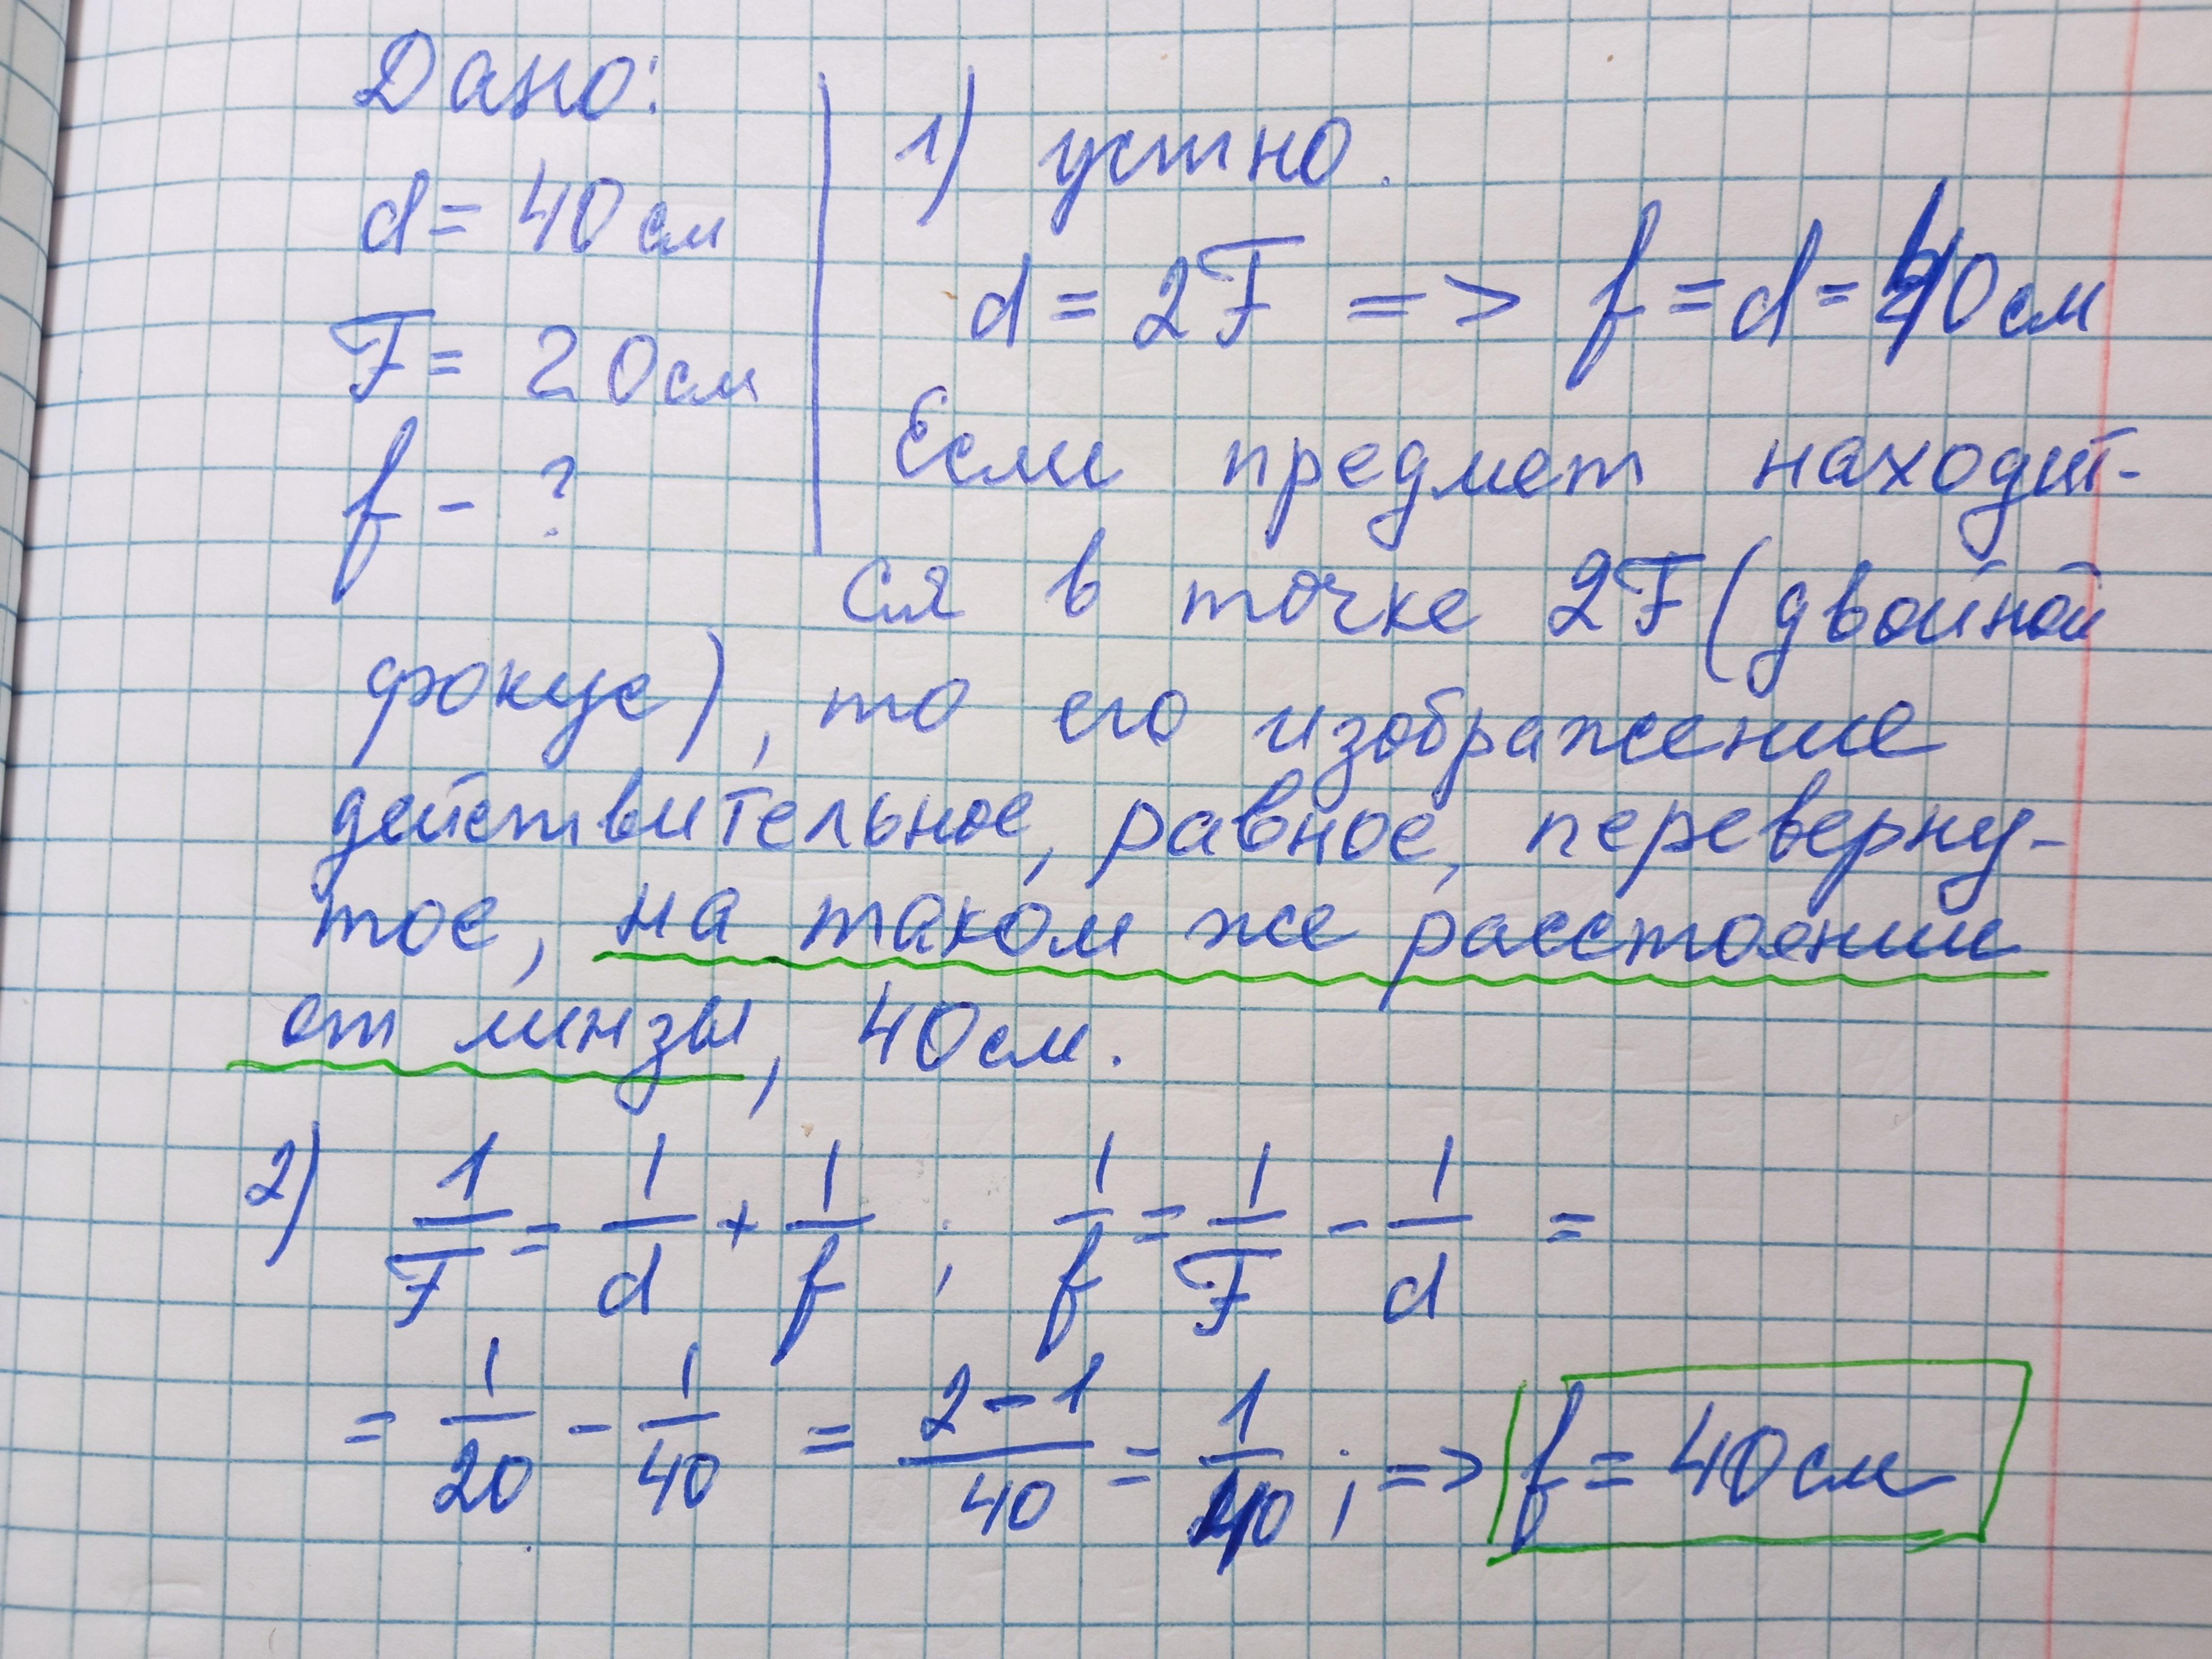 Дано:
d = 40 см
F = 20 см
f - ?
1) устно.
d = 2F => f = d = 40 см
Если предмет находит-
ся в точке 2F (двойной
фокус), то его изображение
действительное, равное, переверну-
тое, на таком же расстоянии
от линзы, 40 см.
2) 1/F = 1/d + 1/f ; 1/f = 1/F - 1/d =
= 1/20 - 1/40 = (2-1)/40 = 1/40 ; => f = 40 см